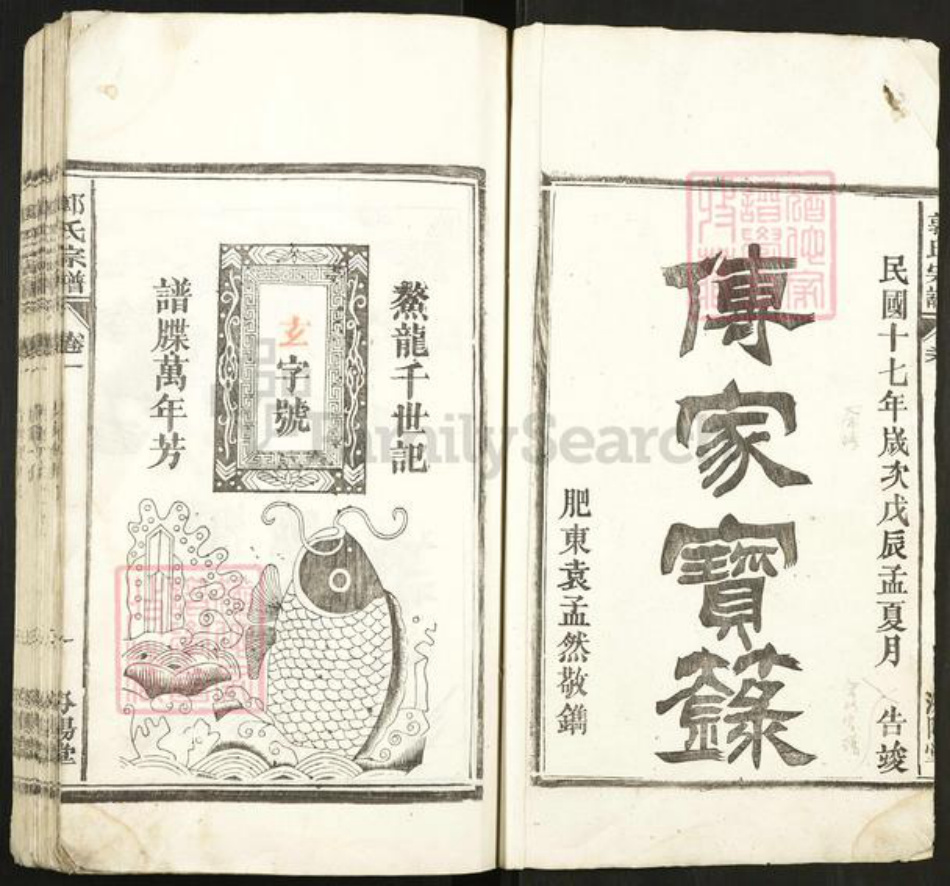 民國十七年歲次戊辰孟夏月 告竣
傳家寶籙
肥東袁孟然敬鐫
鰲龍千世記
玄字號
譜牒萬年芳
郭氏宗譜 卷一
FamilySearch